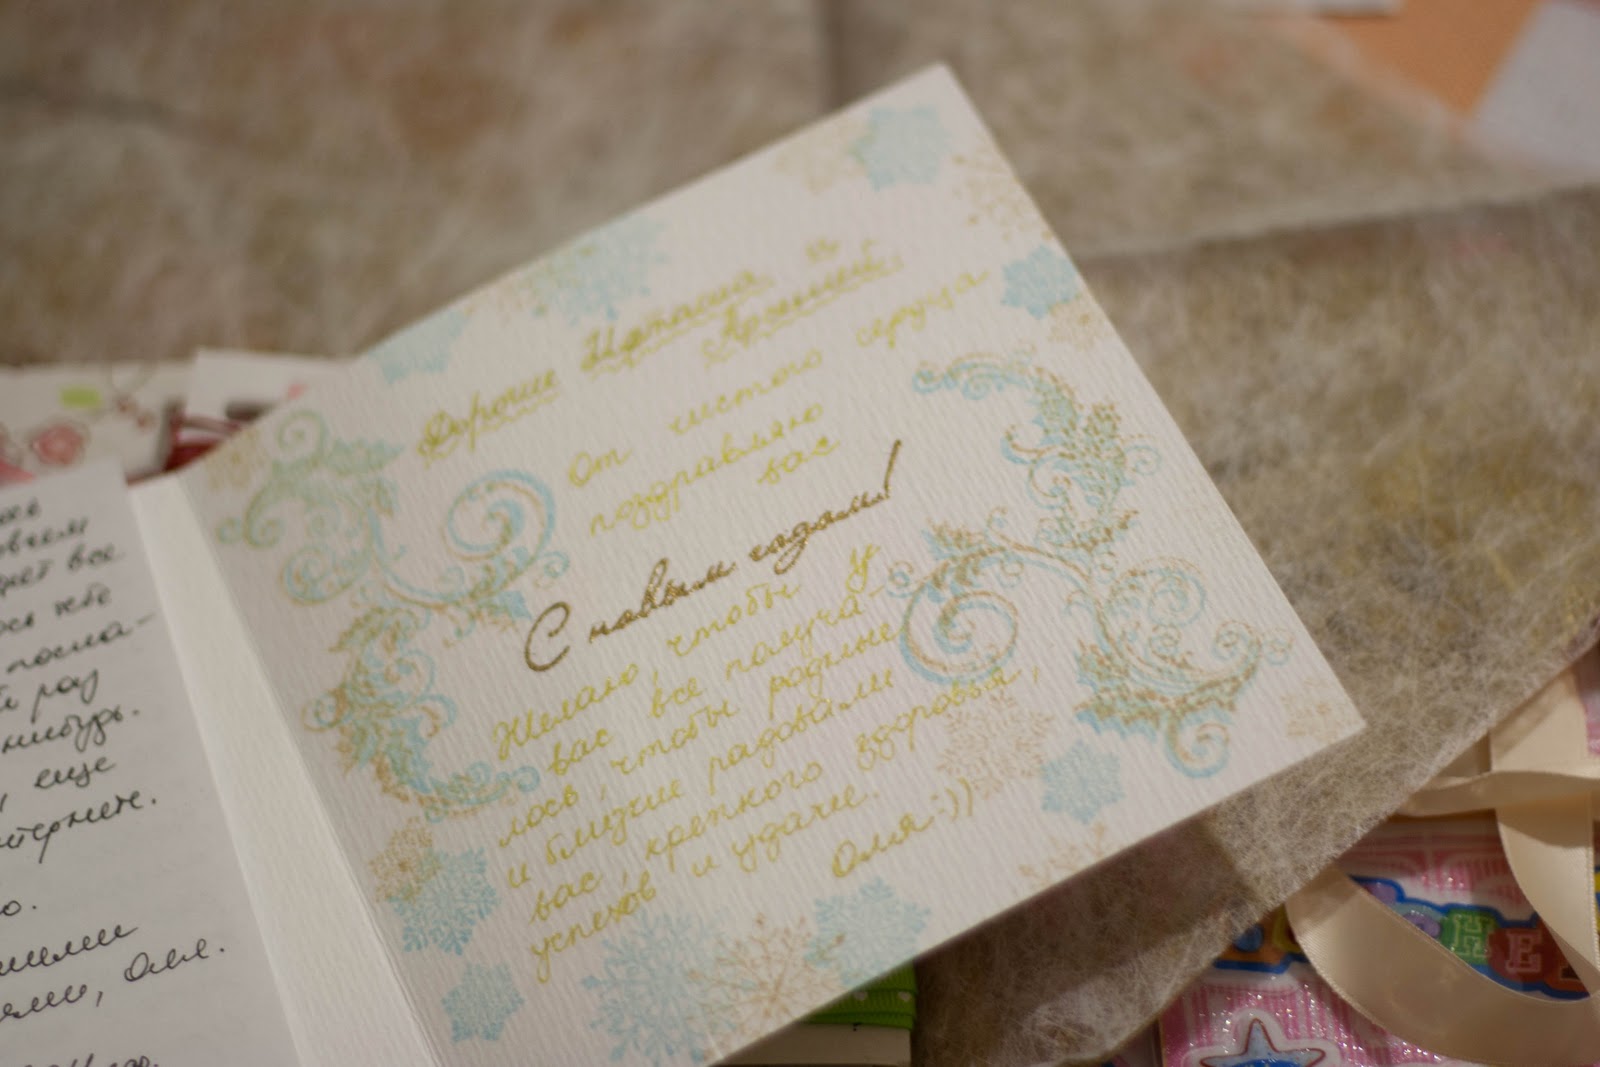 Дорогие Наташа и
Арсений!
От чистого сердца
поздравляю
вас
С новым годом!
Желаю, чтобы у
вас все получа-
лось, чтобы родные
и близкие радовали
вас, крепкого здоровья,
успехов и удачи.
Оля :))
все
тебе
посла-
раз
нибудь.
, еще
о.
, Оля.
НЕ